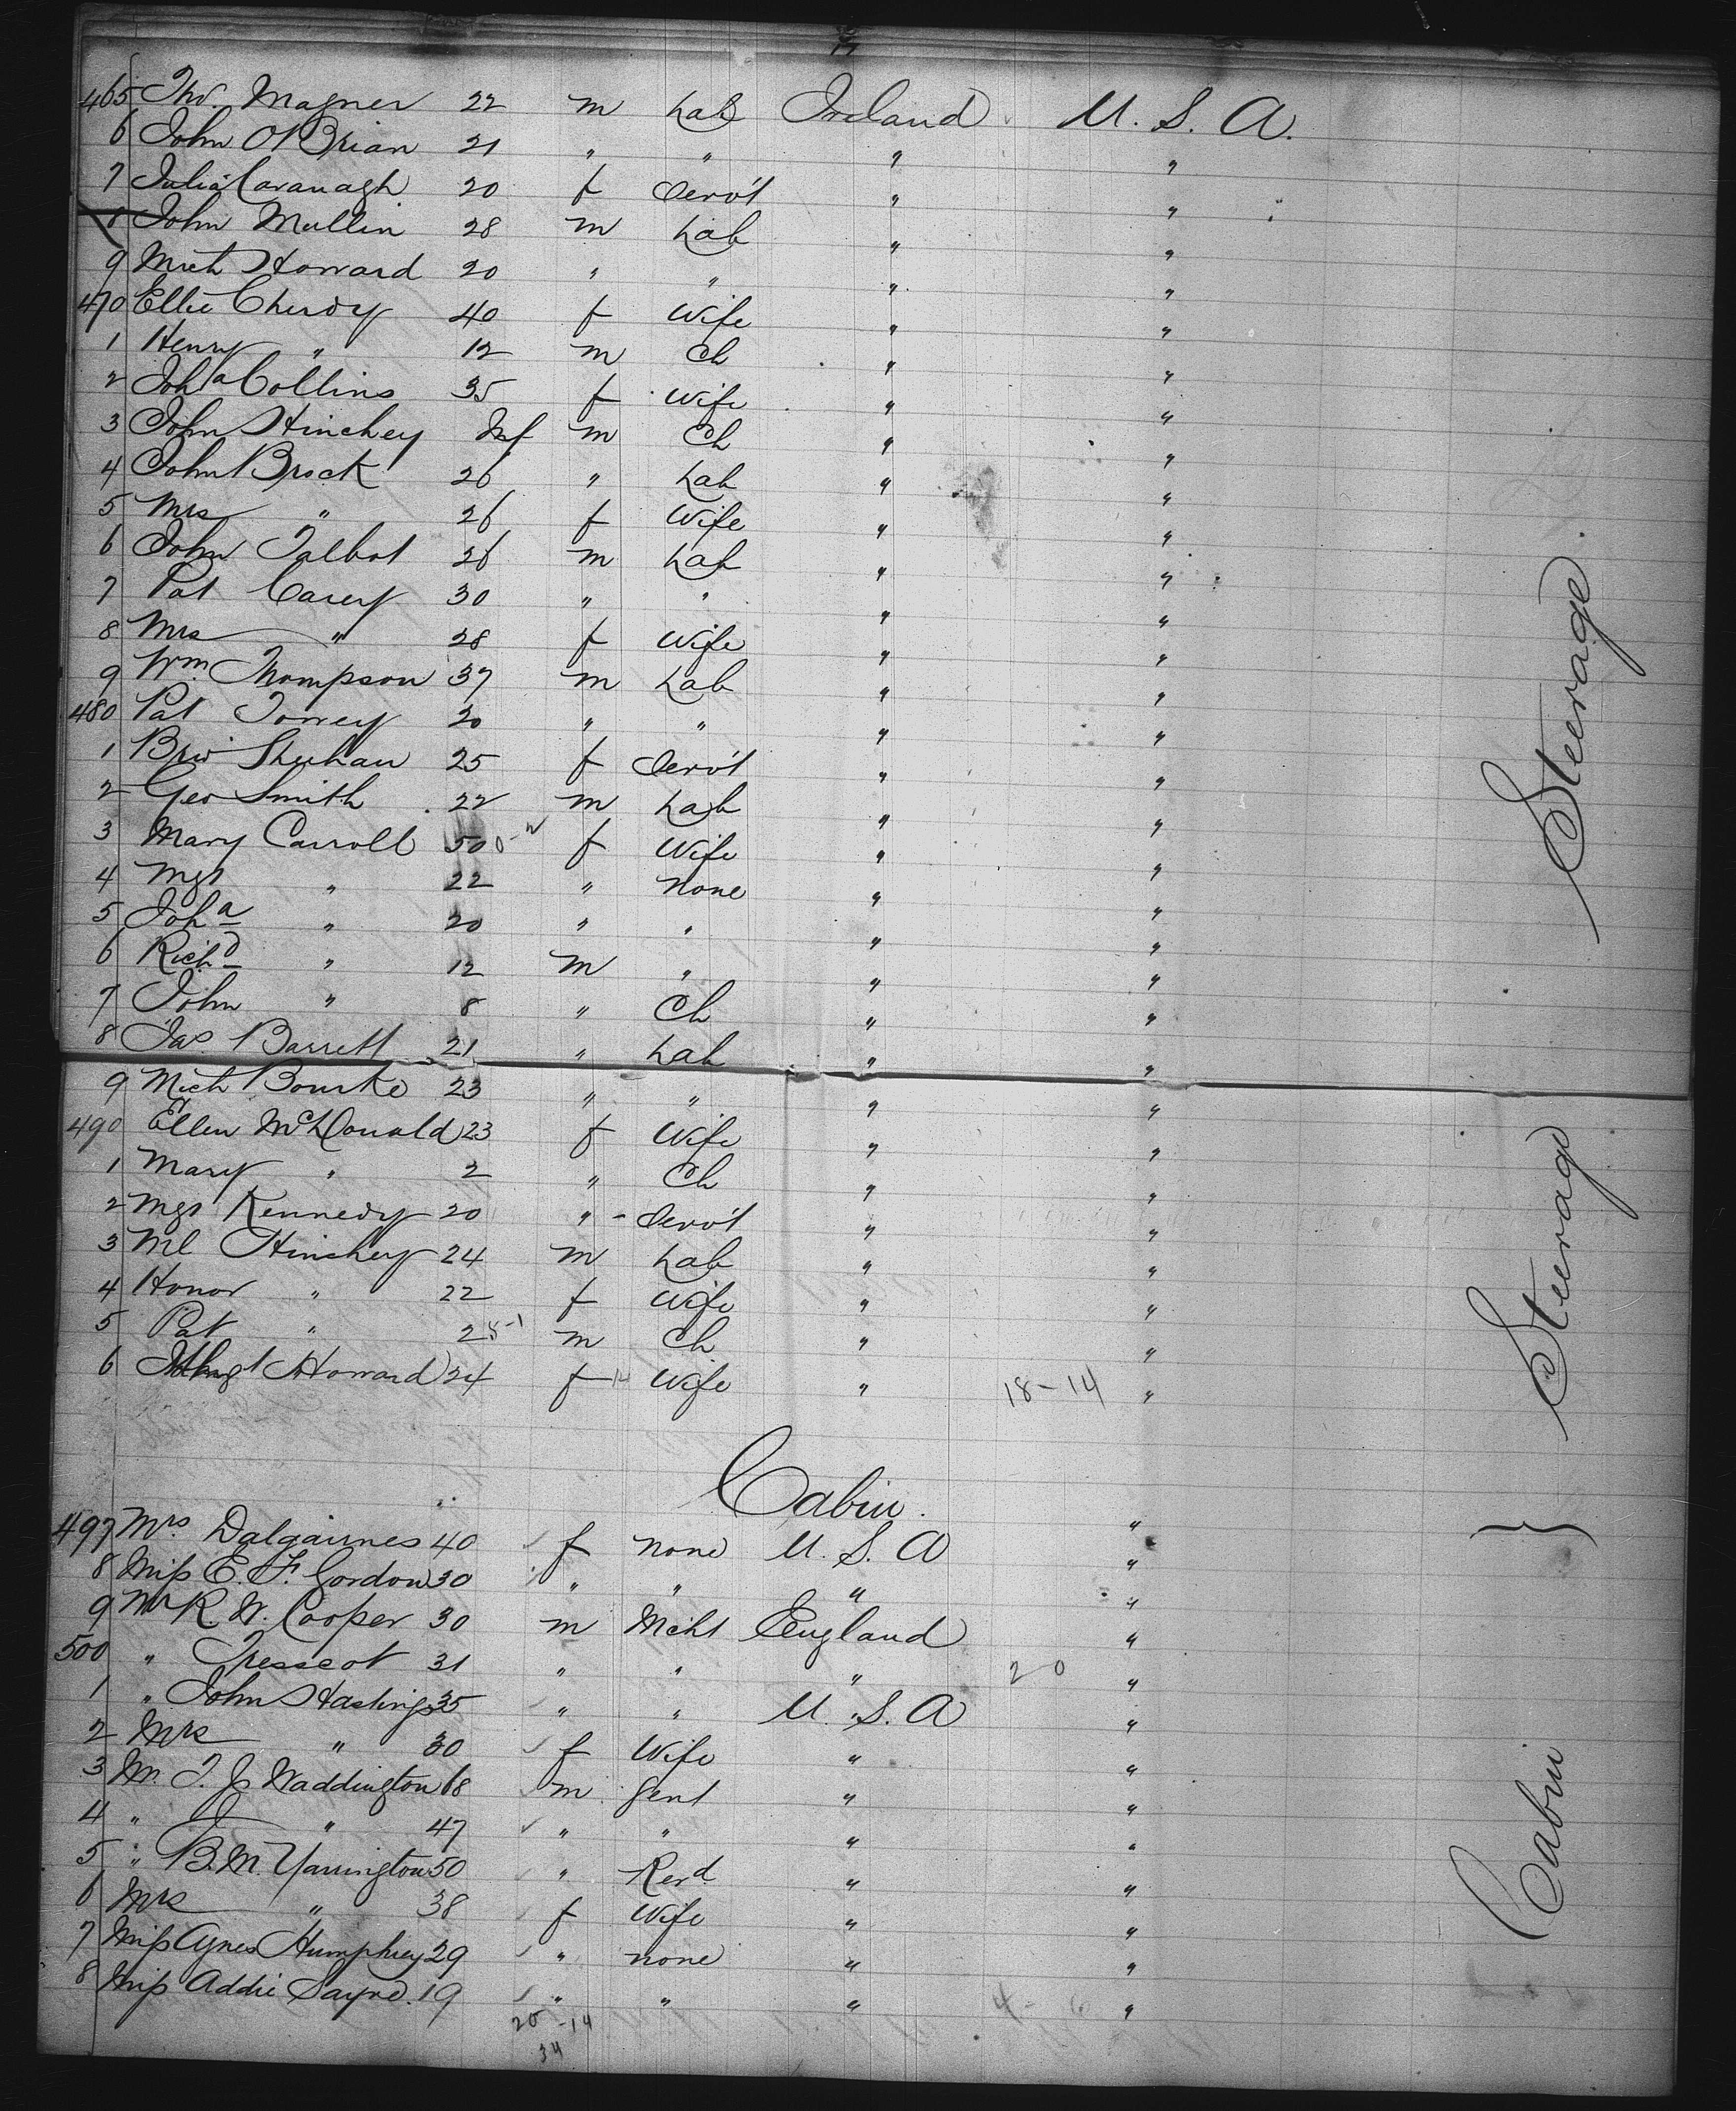 465 Tho. Magner 22 m Lab Ireland U. S. A.
6 John O'Brian 21 " " " "
7 Julia Cavanagh 20 f Serv't " "
8 John Mullin 28 m Lab " "
9 Mich Howard 20 " " " "
470 Ellie 40 f Wife " "
1 Henry " 12 m Ch " "
2 Joha Collins 35 f Wife " "
3 John Hinchey Inf m Ch " "
4 John Brock 26 " Lab " "
5 Mrs " 26 f Wife " "
6 John Talbot 26 m Lab " "
7 Pat Carey 30 " " " "
8 Mrs " 28 f Wife " "
9 Wm Thompson 37 m Lab " "
480 Pat Torrey 20 " " " "
1 Brid Sheehan 25 f Serv't " "
2 Geo Smith 22 m Lab " "
3 Mary Carroll 50 f Wife " "
4 Mgt " 22 " none " "
5 Joha " 20 " " " "
6 Richd " 12 m " " "
7 John " 8 " Ch " "
8 Jas Barrett 21 " Lab " "
9 Mich Bourke 23 " " " "
490 Ellen McDonald 23 f Wife " "
1 Mary " 2 " Ch " "
2 Mgt Kennedy 20 " Serv't " "
3 Ml Hinchey 24 m Lab " "
4 Honor " 22 f Wife " "
5 Pat " 2 m Ch " "
6 Howard 24 f Wife " 18-14 "
Steerage
Steerage
Cabin.
497 Mrs Dalgairnes 40 f none U. S. A "
8 Miss E. F. Gordon 30 " " " "
9 Mr R. W. Cooper 30 m Mcht England "
500 " Tresscot 31 " " " 20 "
1 " John Hastings 35 " " U. S. A "
2 Mrs " 30 f Wife " "
3 Mr. T. J. Waddington 68 m Gent " "
4 " J " 47 " " " "
5 " B. M. Yarrington 50 " Revd " "
6 Mrs " 38 f Wife " "
7 Miss Agnes Humphrey 29 " none " "
8 Miss Addie Sayre. 19 " " " "
20-14
34
Cabin